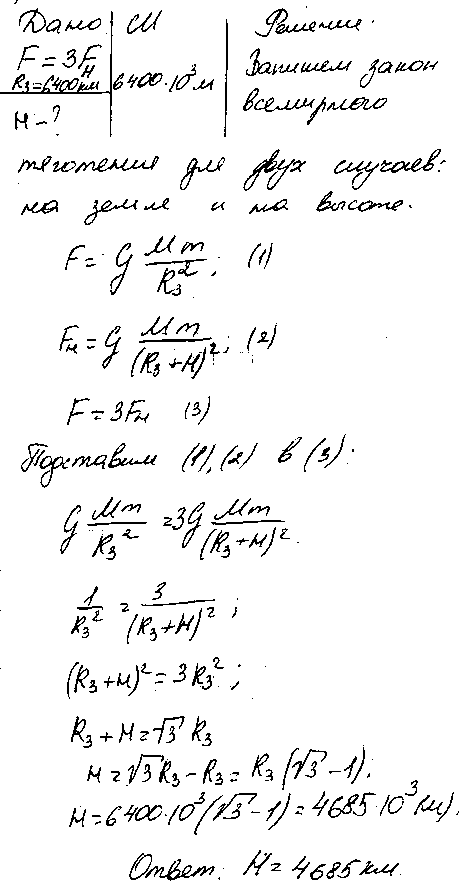 Дано СИ Решение.
F = 3Fн
Rз = 6400 км 6400·10³ м Запишем закон
H - ? всемирного
тяготения для двух случаев:
на земле и на высоте.
F = G Mm/Rз²; (1)
Fн = G Mm/(Rз + H)²; (2)
F = 3Fн (3)
Подставим (1), (2) в (3):
G Mm/Rз² = 3G Mm/(Rз + H)².
1/Rз² = 3/(Rз + H)²;
(Rз + H)² = 3Rз²;
Rз + H = √3 Rз
H = √3 Rз - Rз = Rз (√3 - 1).
H = 6400·10³ (√3 - 1) = 4685·10³ (м).
Ответ: H = 4685 км.